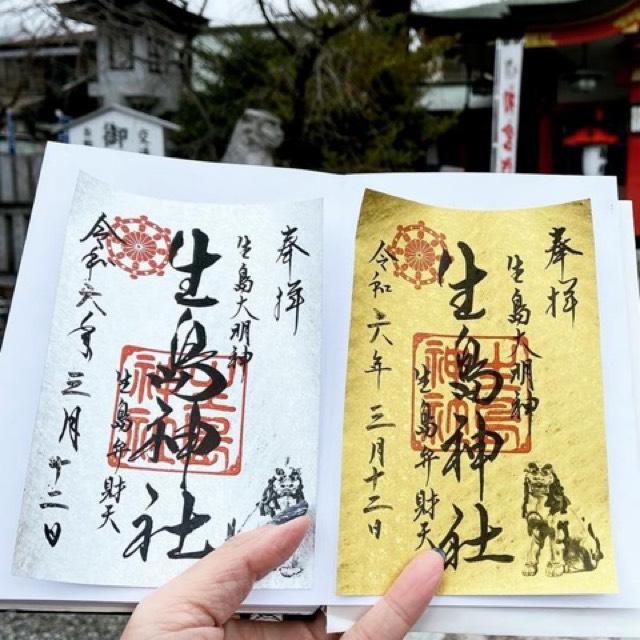 奉拝
生島大明神
生島神社
生島弁財天
令和六年三月十二日
奉拝
生島大明神
生島神社
生島弁財天
令和六年三月十二日
御